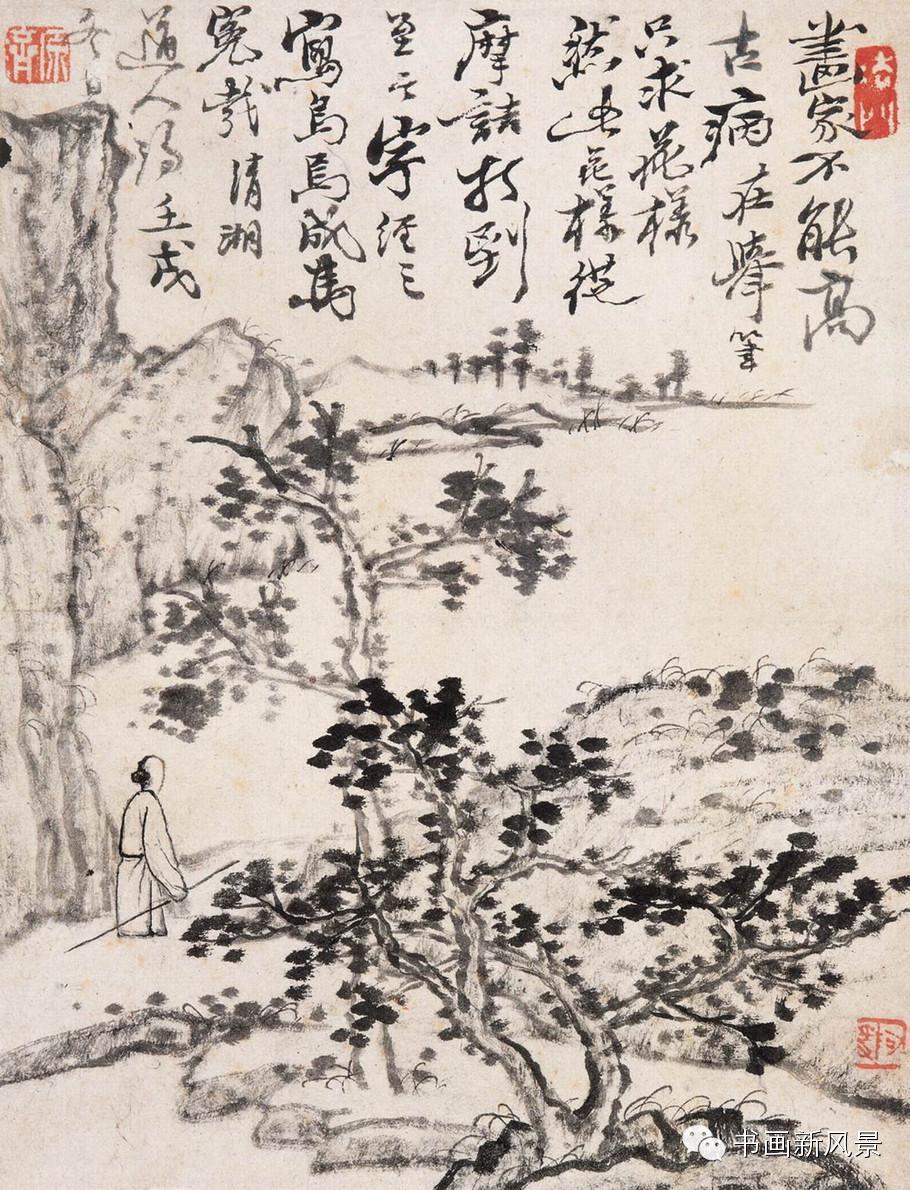 畫家不能高
古病在舉筆
只求花樣
然此花樣從
摩詰打到
至今字經三
寫烏焉成馬
冤哉清湘
道人濟壬戌
书画新风景